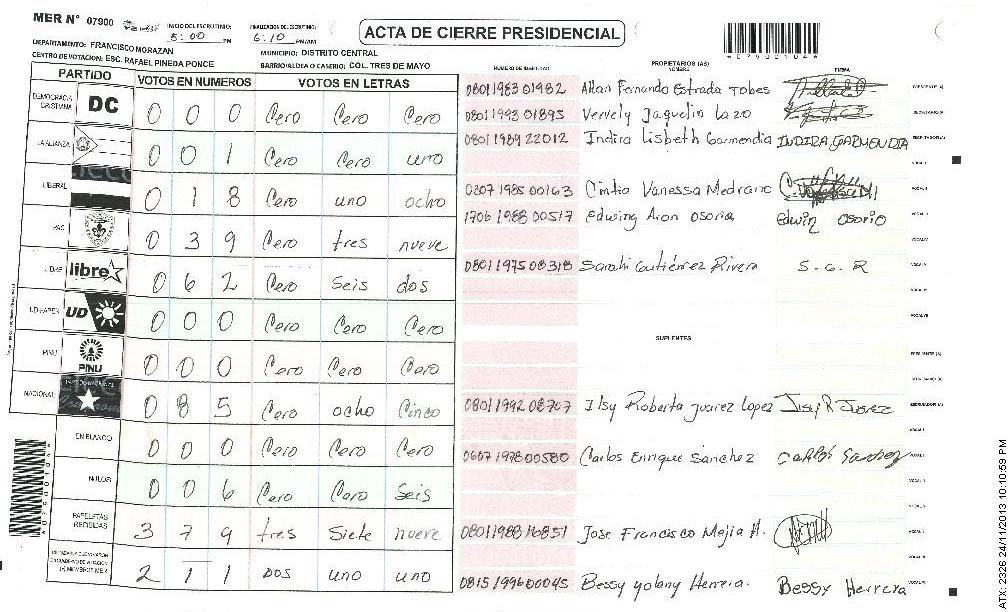 MER N° 07900
INICIO DEL ESCRUTINIO: 5:00 PM
FINALIZACION DEL ESCRUTINIO: 6:10 PM/AM
ACTA DE CIERRE PRESIDENCIAL
DEPARTAMENTO: FRANCISCO MORAZAN
MUNICIPIO: DISTRITO CENTRAL
CENTRO DE VOTACION: ESC. RAFAEL PINEDA PONCE
BARRIO/ALDEA O CASERIO: COL. TRES DE MAYO
PARTIDO VOTOS EN NUMEROS VOTOS EN LETRAS
DEMOCRACIA CRISTIANA DC 0 0 0 Cero Cero Cero
LA ALIANZA 0 0 1 Cero Cero uno
LIBERAL 0 1 8 Cero uno ocho
PAC 0 3 9 Cero tres nueve
LIBRE libre 0 6 2 Cero seis dos
UD-FAPER UD 0 0 0 Cero Cero Cero
PINU PINU 0 0 0 Cero Cero Cero
NACIONAL 0 8 5 Cero ocho Cinco
EN BLANCO 0 0 0 Cero Cero Cero
NULOS 0 0 6 Cero Cero Seis
PAPELETAS RECIBIDAS 3 7 9 tres Siete nueve
2 1 1 Dos uno uno
NUMERO DE IDENTIDAD PROPIETARIOS (AS) NOMBRE FIRMA
0801 1983 01982 Allan Fernando Estrada Tobes PRESIDENTE (A)
0801 1993 01895 Vervely Jaquelin Lazo SECRETARIO (A)
0801 1989 22012 Indira Lisbeth Garmendia INDIRA GARMENDIA ESCRUTADOR (A)
0307 1985 00163 Cintia Vanessa Medrano
1706 1988 00517 Edwing Aron Osoria Edwin Osorio
0801 1975 08318 Sarahi Gutiérrez Rivera S. G. R
SUPLENTES
PRESIDENTE (A)
SECRETARIO (A)
0801 1992 08707 Ilsy Roberta Juarez Lopez Ilsy R Juarez ESCRUTADOR (A)
0607 1978 00580 Carlos Enrique Sanchez Carlos Sanchez
0801 1988 16851 Jose Francisco Mejia H.
0815 1996 00045 Bessy Yolany Herrera. Bessy Herrera
ATX-2326 24/11/2013 10:10:59 PM